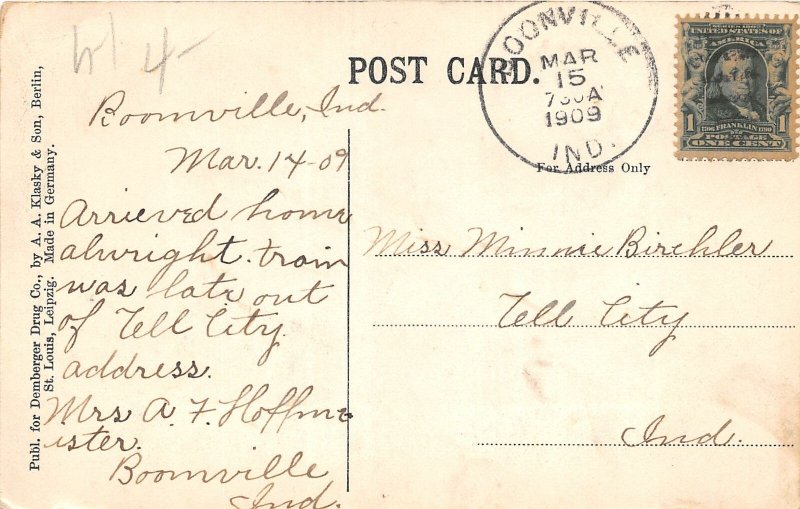 POST CARD.
BOONVILLE
MAR
15
730A
1909
IND.
SERIES 1902
UNITED STATES OF
AMERICA
1 FRANKLIN 1
POSTAGE
ONE CENT
For Address Only
Publ. for Demberger Drug Co., by A. A. Klasky & Son, Berlin,
St. Louis, Leipzig. Made in Germany.
Boonville, Ind.
Mar. 14-09
Arrieved home
alwright. train
was late out
of Tell City.
address.
Mrs A. F. Hoffme
ister.
Boonville
Ind.
Miss Minnie Birchler
Tell City
Ind.